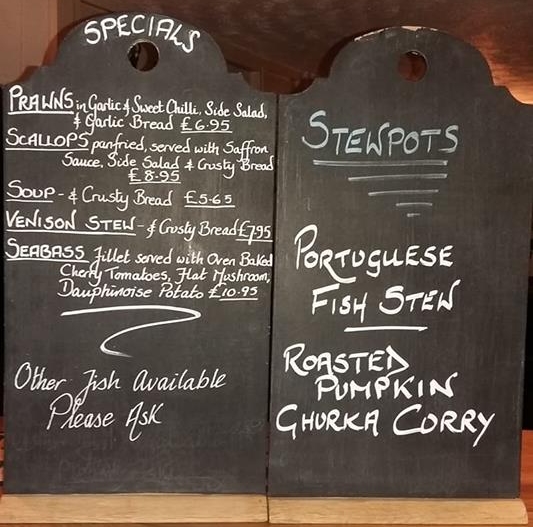 SPECIALS
PRAWNS in Garlic & Sweet Chilli, Side Salad,
& Garlic Bread £6.95
SCALLOPS panfried, served with Saffron
Sauce, Side Salad & Crusty Bread
£8.95
SOUP - & Crusty Bread £5.65
VENISON STEW - & Crusty Bread £7.95
SEABASS fillet served with Oven Baked
Cherry Tomatoes, Flat Mushroom,
Dauphinoise Potato £10.95
Other Fish Available
Please Ask
STEWPOTS
PORTUGUESE
FISH STEW
ROASTED
PUMPKIN
GHURKA CURRY